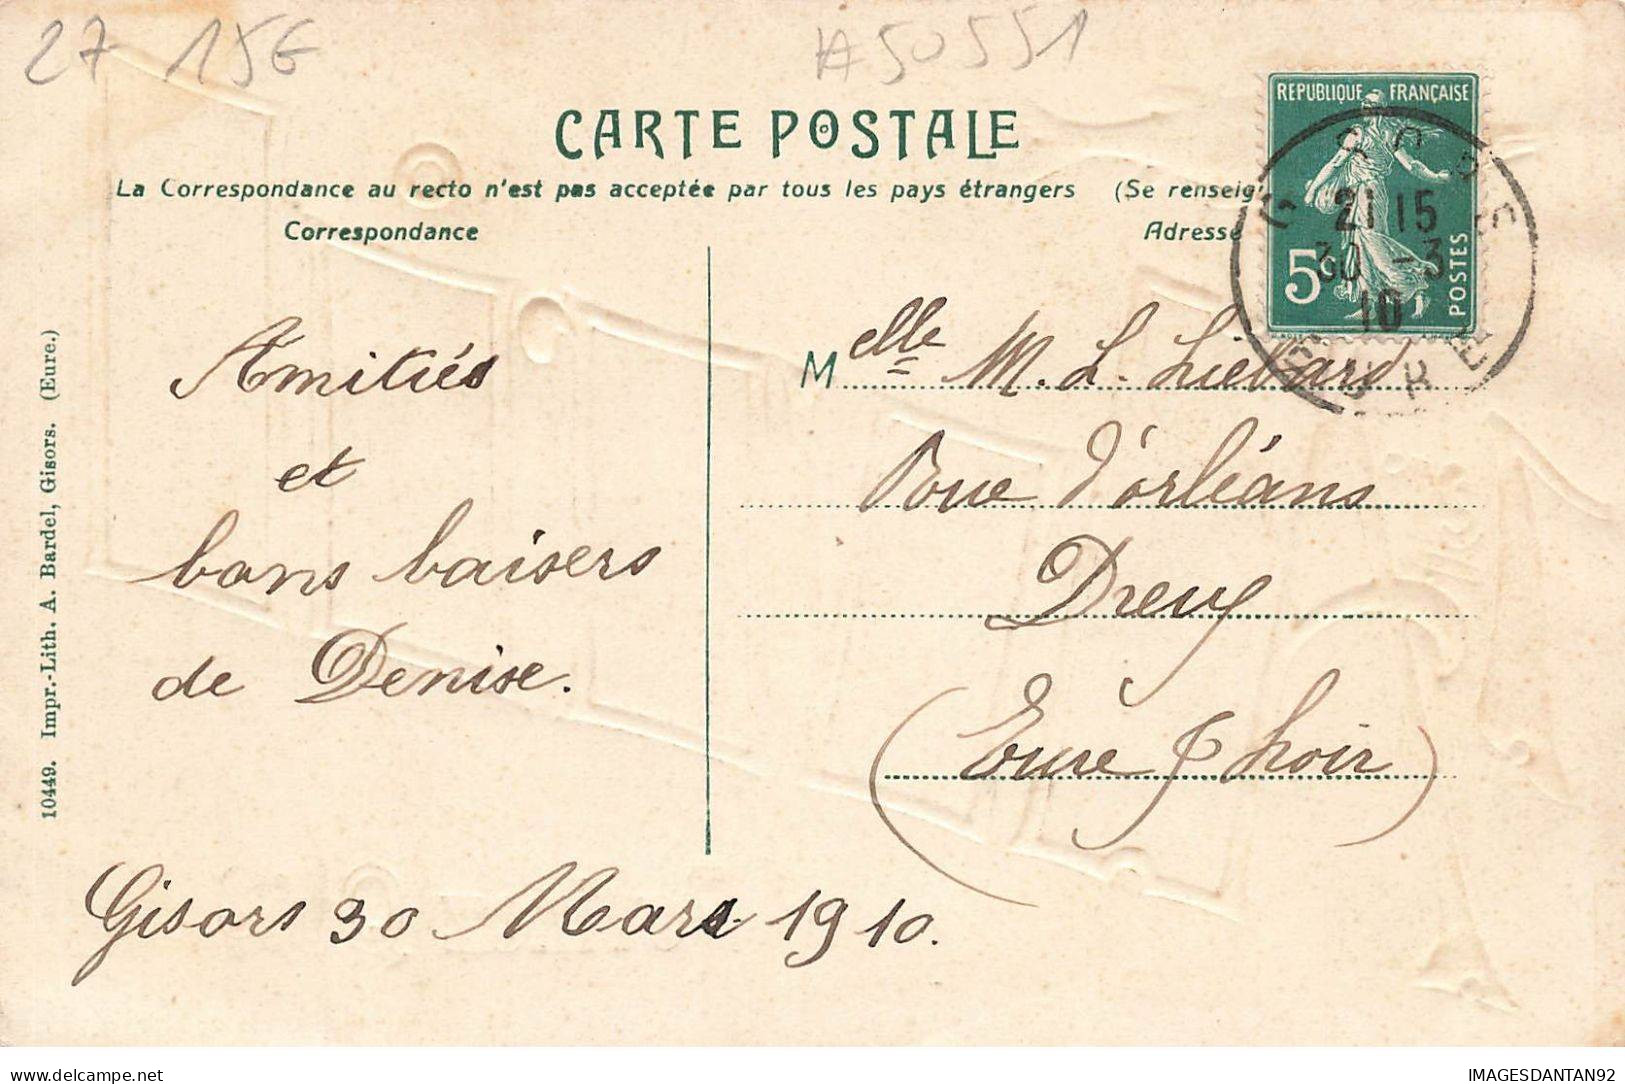 27 15€
A50551
CARTE POSTALE
La Correspondance au recto n'est pas acceptée par tous les pays étrangers (Se renseig
Correspondance
Adresse
REPUBLIQUE FRANÇAISE
5c
POSTES
GISORS
21 15
30 -3
10
EURE
Amitiés
et
bons baisers
de Denise.
Melle M. L. Liébard
Rue d'orléans
Dreux
(Eure & Loir)
Gisors 30 Mars 1910.
10449. Impr.-Lith. A. Bardel, Gisors. (Eure.)
delcampe.net
IMAGESDANTAN92